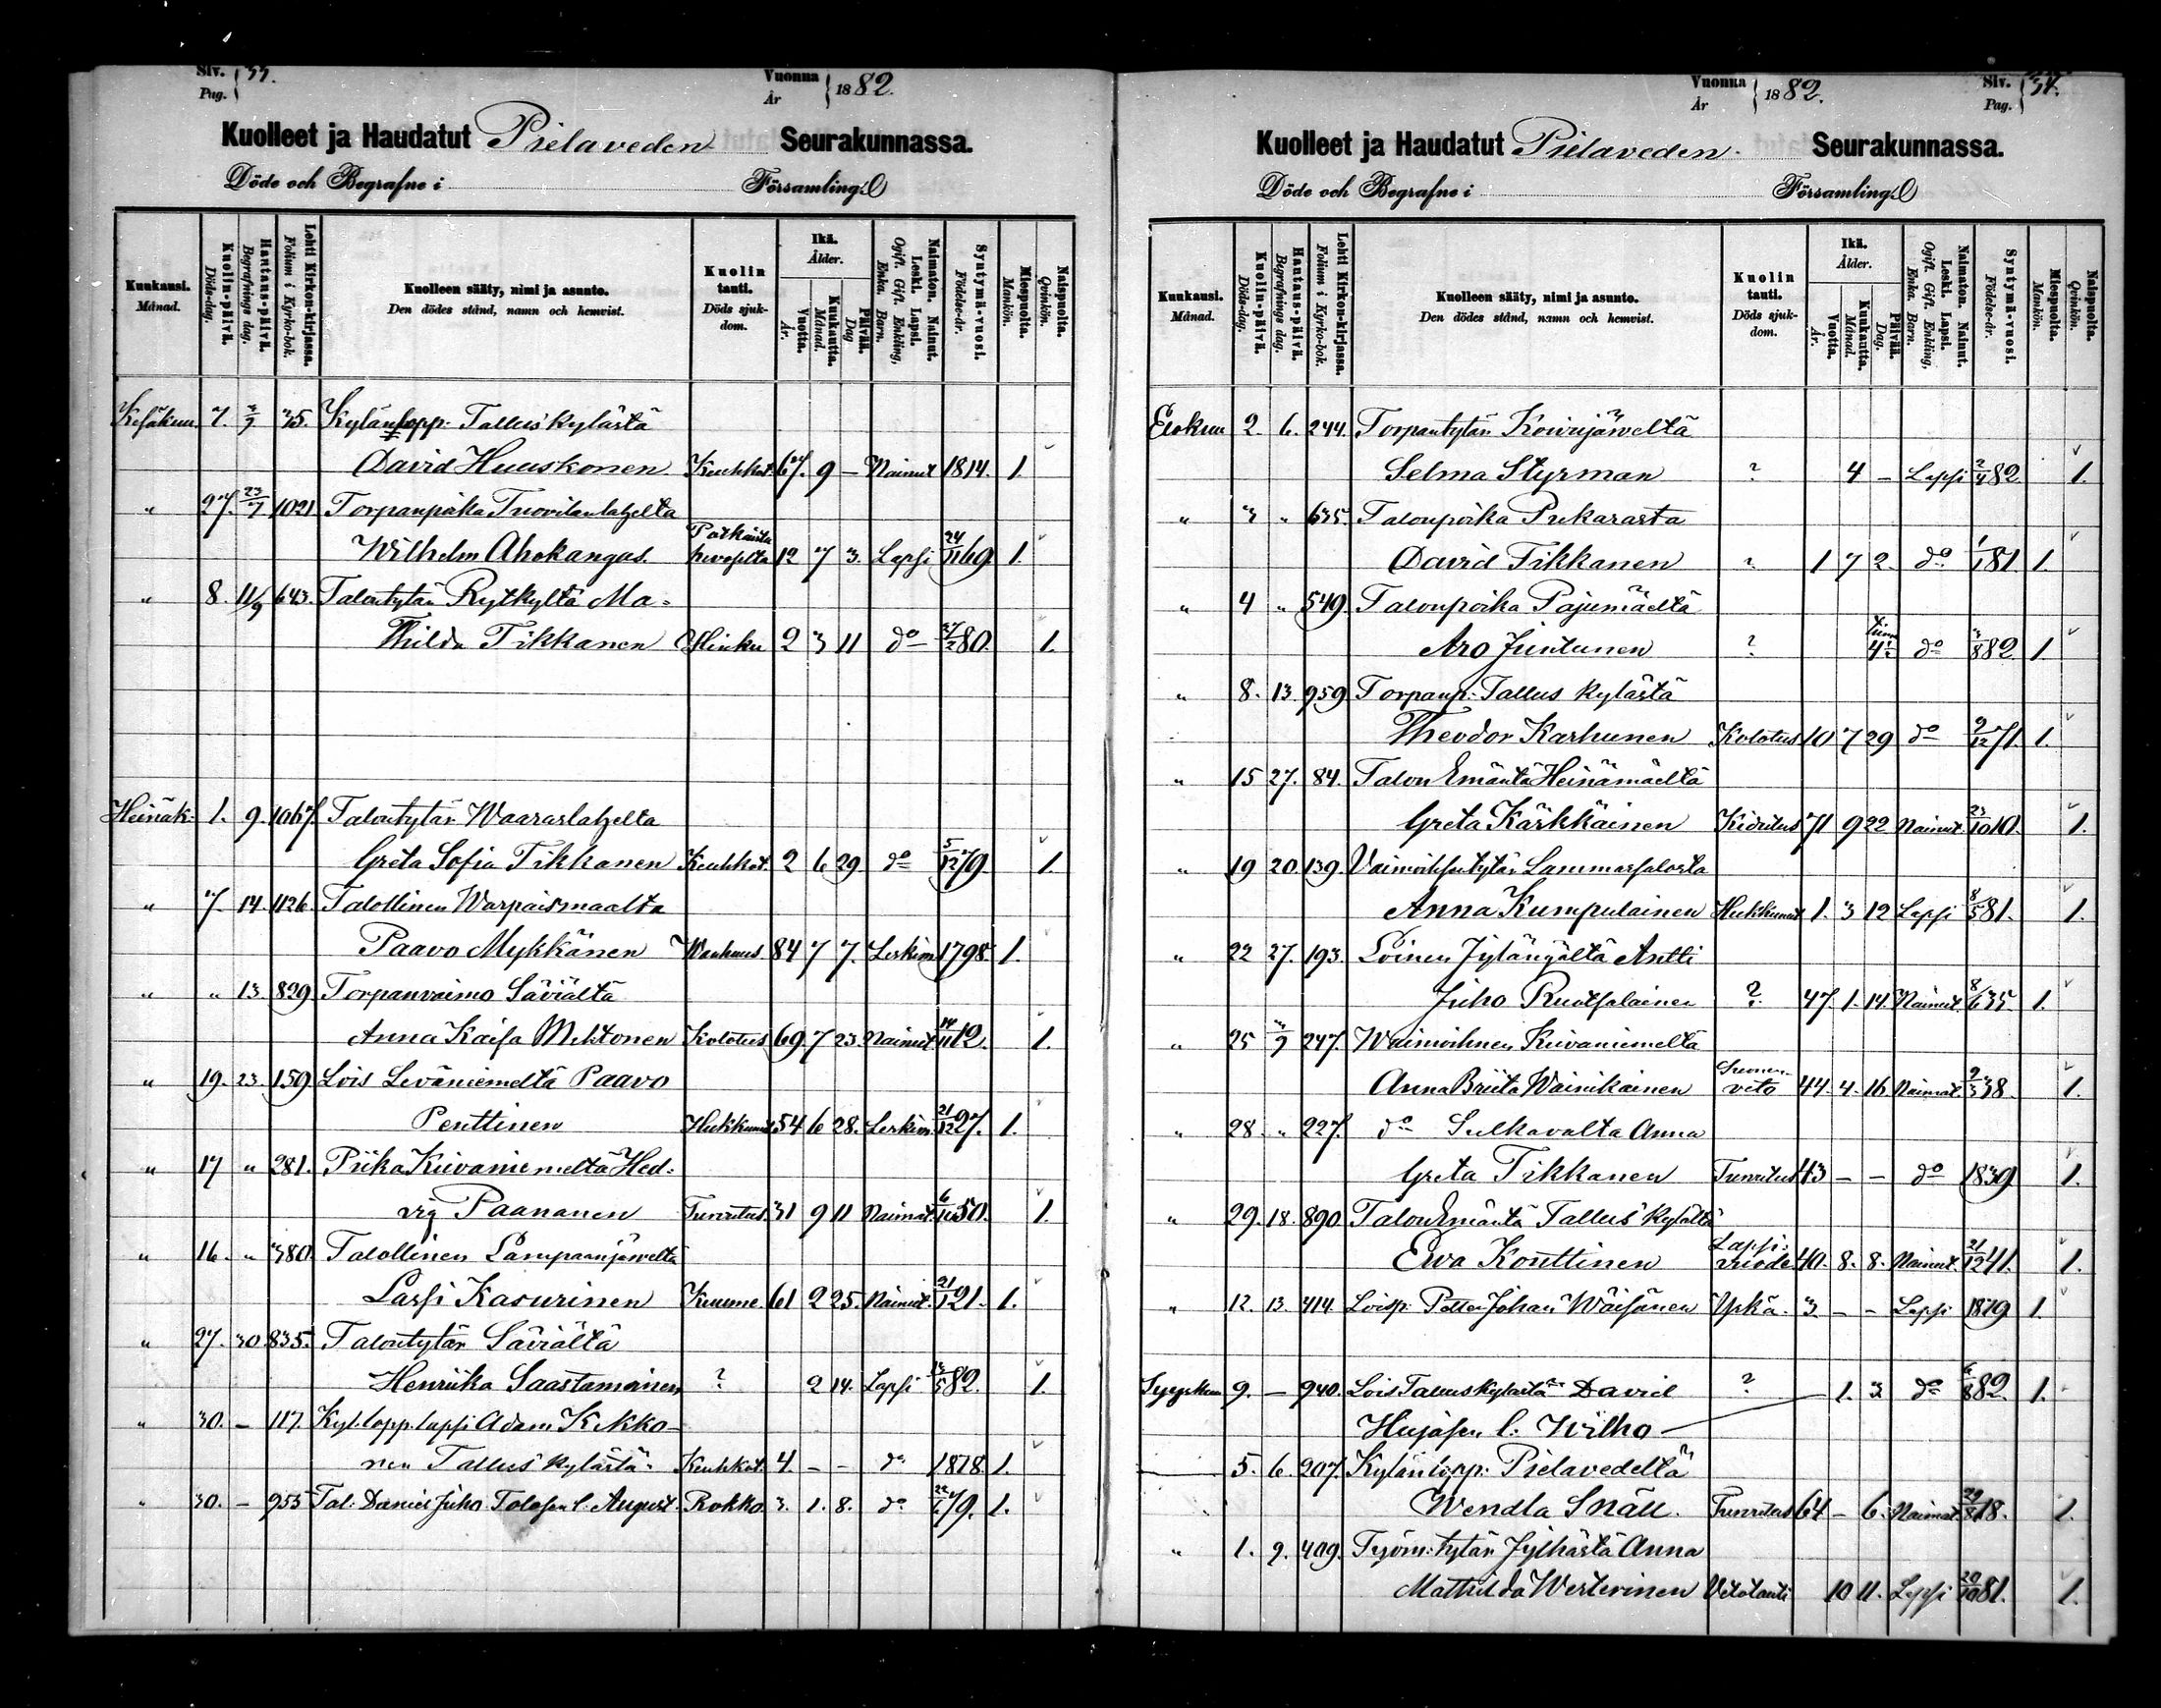 Siv. Pag. 33.
Vuonna År 1882.
Kuolleet ja Haudatut Pielaveden Seurakunnassa.
Döde och Begrafne i Församling.
Kuukausi. Månad.
Kuolin-päivä. Döds-dag.
Hautaus-päivä. Begrafnings dag.
Lehti Kirkon-kirjassa. Folium i Kyrko-bok.
Kuolleen sääty, nimi ja asunto. Den dödes stånd, namn och hemvist.
Kuolin tauti. Döds sjukdom.
Ikä. Ålder.
Vuotta. År.
Kuukautta. Månad.
Päivää. Dag
Naimaton. Nainut. Leski. Lapsi. Ogift. Gift. Enkling, Enka. Barn.
Syntymä-vuosi. Födelse-år.
Miespuolta. Mankön.
Naispuolta. Qvinkön.
Kesäkuu 7. 35. Kylänlopp: Tallus kylästä
David Huuskonen Keuhkot. 67. 9 – Nainut 1814. 1.
" 27. 23/7 1021 Torpanpoika Tuovilanlahelta
Wilhelm Ahokangas. Potkaista hevoselta 12 7 3. Lapsi 24/11 69. 1.
" 8. 11/9 643. Talontytär Rytkyltä Ma=
thilda Tikkanen Hinku 2 3 11 do 27/2 80. 1.
Heinäk: 1. 9. 1067. Talontytär Waaraslahelta
Greta Sofia Tikkanen Keuhkot. 2 6 29. do 5/12 79. 1.
" 7. 14. 1126. Talollinen Warpaismaalta
Paavo Mykkänen Wanhuus 84 7 7. Leskim 1798. 1.
" " 13. 829 Torpanvaimo Säviältä
Anna Kaisa Mehtonen Kolotus 69. 7 23. Nainut 14/11 12. 1.
" 19. 23. 159 Lois Leväniemeltä Paavo
Penttinen Hukkunut 54 6 28. Leskim 21/12 27. 1.
" 17 " 281. Piika Kiivaniemeltä Hed=
vig Paananen Turvotus. 31 9 11 Naimat. 50. 1.
" 16. " 380. Talollinen Lampaanjärveltä
Lassi Kasurinen Kuume. 61 2 25. Nainut. 21/1 21. 1.
" 27. 30. 835. Talontytär Säviältä
Henriika Saastamoinen ? 2 14. Lapsi 13/5 82. 1.
" 30. – 117. Kyl. lopp. lapsi Adam Kekko–
nen Tallus kylästä. Keuhkot. 4. – – do 1878. 1.
" 30. – 955 Tal. Daniel Juho Tolosen l. August. Rokko. 3. 1. 8. do 79. 1.
Vuonna År 1882.
Siv. Pag. 34.
Kuolleet ja Haudatut Pielaveden Seurakunnassa.
Döde och Begrafne i Församling.
Kuukausi. Månad.
Kuolin-päivä. Döds-dag.
Hautaus-päivä. Begrafnings dag.
Lehti Kirkon-kirjassa. Folium i Kyrko-bok.
Kuolleen sääty, nimi ja asunto. Den dödes stånd, namn och hemvist.
Kuolin tauti. Döds sjukdom.
Ikä. Ålder.
Vuotta. År.
Kuukautta. Månad.
Päivää. Dag.
Naimaton. Nainut. Leski. Lapsi. Ogift. Gift. Enkling, Enka. Barn.
Syntymä-vuosi. Födelse-år.
Miespuolta. Mankön.
Naispuolta. Qvinkön.
Elokuu 2. 6. 244. Torpantytär Koivujärveltä
Selma Styrman ? 4 – Lapsi 2/4 82 1.
" 3 " 635. Talonpoika Pukarasta
David Tikkanen ? 1 7 2. do 1/1 81. 1.
" 4 " 549. Talonpoika Pajumäeltä
Aro Juntunen ? 4 do 3/8 82. 1.
" 8. 13. 959. Torpanp: Tallus kylästä
Theodor Karhunen Kolotus 10 7 29 do 9/12 71. 1.
" 15 27. 84. Talon Emäntä Heinämäeltä
Greta Kärkkäinen Kivitus 71 9 22 Nainut. 23/10 10. 1.
" 19 20. 139. Vaimoihsentytär Lammassalosta
Anna Kumpulainen Hukkunut 1. 3 12 Lapsi 8/5 81. 1.
" 22 27. 193. Loinen Jylängältä Antti
Juho Ruotsalainen ? 47. 1. 14. Nainut. 8/6 35. 1.
" 25 3/9 247. Waimoihnen Kiivaniemeltä
Anna Briita Wäinikainen Suonenveto 44. 4. 16. Naimat. 9/3 38. 1.
" 28. " 227. do Sulkavalta Anna
Greta Tikkanen Turvotus 43 – – do 1839 1.
" 29. 18. 890. Talon Emäntä Tallus kylältä
Ewa Konttinen Lapsivuode 40. 8. 8. Nainut. 21/12 41. 1.
" 12. 13. 414. Loisp: Petter Johan Wäisänen Yskä. 3. – – Lapsi 1879 1.
Syyskuu 9. – 940. Lois Tallus kylästä David ? 1. 3. do 6/8 82. 1.
Hujasen l: Wilho
5. 6. 207. Kylänlopp: Pielavedeltä
Wendla Snäll. Turvotus 64 – 6. Naimat. 29/8 18. 1.
" 1. 9. 409. Työm: tytär Jylhästä Anna
Mathilda Westerinen Vetotauti 10 11. Lapsi 20/10 81. 1.